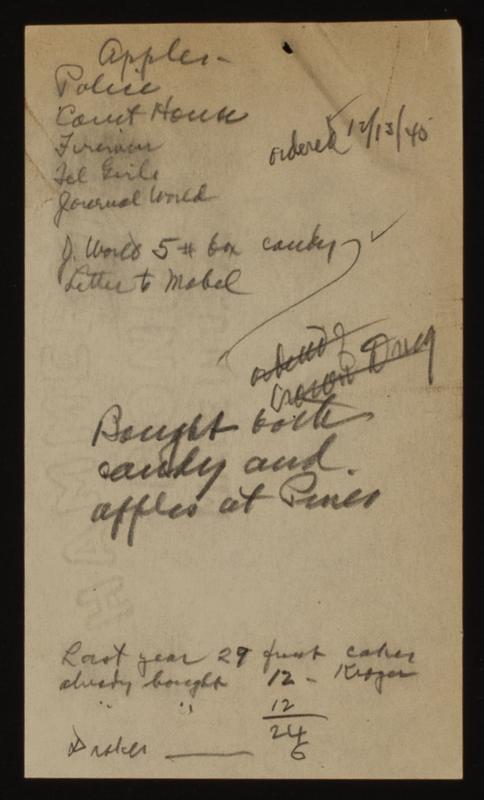 Apples -
Police
Court House
Firemen
Tel Girls
Journal World
ordered 12/13/40
J. World 5 # box candy ✓
Letter to Mabel
ordered
Crown Drug
Bought both
candy and
apples at Pines
Last year 29 fruit cakes
already bought 12 - Kroger
" " 12
24
Drakes — 6